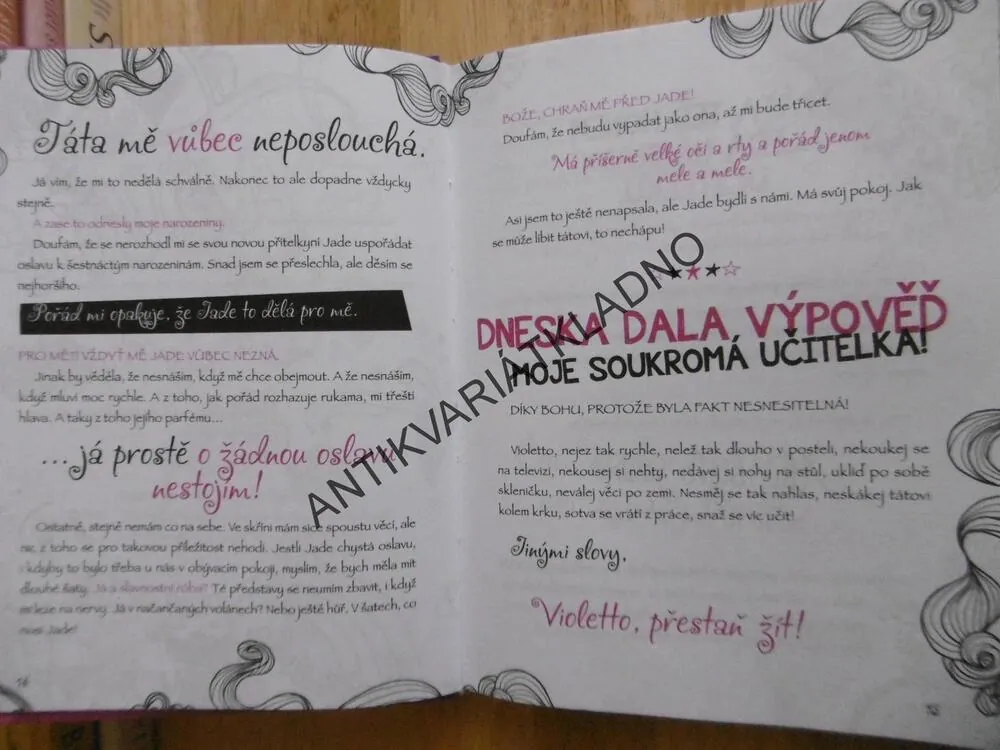 Táta mě vůbec neposlouchá.
Já vím, že mi to nedělá schválně. Nakonec to ale dopadne vždycky
stejně.
A zase to odnesly moje narozeniny.
Doufám, že se nerozhodl mi se svou novou přítelkyní Jade uspořádat
oslavu k šestnáctým narozeninám. Snad jsem se přeslechla, ale děsím se
nejhoršího.
Pořád mi opakuje, že Jade to dělá pro mě.
PRO MĚ?! VŽDYŤ MĚ JADE VŮBEC NEZNÁ.
Jinak by věděla, že nesnáším, když mě chce obejmout. A že nesnáším,
když mluví moc rychle. A z toho, jak pořád rozhazuje rukama, mi třeští
hlava. A taky z toho jejího parfému...
...já prostě o žádnou oslavu
nestojím!
Ostatně, stejně nemám co na sebe. Ve skříni mám sice spoustu věcí, ale
nic z toho se pro takovou příležitost nehodí. Jestli Jade chystá oslavu,
i kdyby to bylo třeba u nás v obývacím pokoji, myslím, že bych měla mít
dlouhé šaty. Já a slavnostní róba? Té představy se neumím zbavit, i když
mi leze na nervy. Já v načančaných volánech? Nebo ještě hůř. V šatech, co
nosí Jade!
14
BOŽE, CHRAŇ MĚ PŘED JADE!
Doufám, že nebudu vypadat jako ona, až mi bude třicet.
Má příšerně velké oči a rty a pořád jenom
mele a mele.
Asi jsem to ještě nenapsala, ale Jade bydlí s námi. Má svůj pokoj. Jak
se může líbit tátovi, to nechápu!
DNESKA DALA VÝPOVĚĎ
MOJE SOUKROMÁ UČITELKA!
DÍKY BOHU, PROTOŽE BYLA FAKT NESNESITELNÁ!
Violetto, nejez tak rychle, nelež tak dlouho v posteli, nekoukej se
na televizi, nekousej si nehty, nedávej si nohy na stůl, ukliď po sobě
skleničku, neválej věci po zemi. Nesměj se tak nahlas, neskákej tátovi
kolem krku, sotva se vrátí z práce, snaž se víc učit!
Jinými slovy,
Violetto, přestaň žít!
ANTIKVARIÁTKLADNO